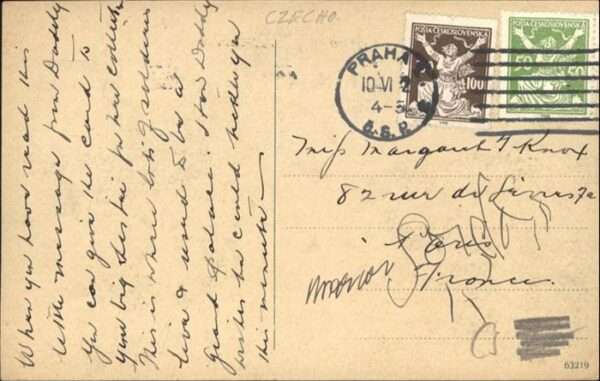 When you have read this
little message from Daddy
you can give the card to
your big sister for her collection
This is where lots of soldiers
live & used to be a
great palace. How Daddy
wishes he could hold you
this minute—
CZECHO.
PRAHA
10 VI 2
4-5
Č.S.P.
POŠTA ČESKOSLOVENSKÁ
100
POŠTA ČESKOSLOVENSKÁ
50 50
Miss Margaret T Knox
82 rue de
à Paris
France.
63219